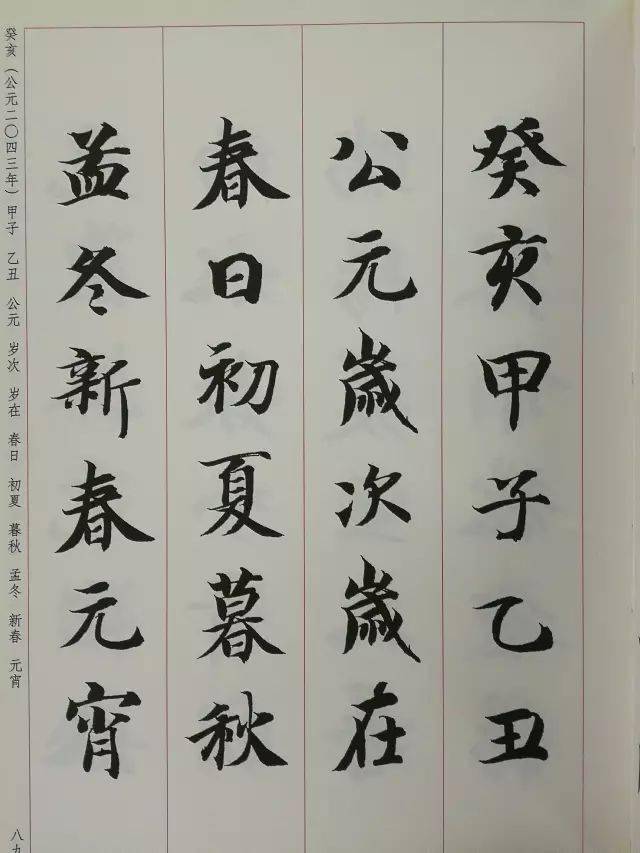 癸亥甲子乙丑
公元歲次歲在
春日初夏暮秋
孟冬新春元宵
癸亥（公元二〇四三年）甲子 乙丑 公元 岁次 岁在 春日 初夏 暮秋 孟冬 新春 元宵
八九